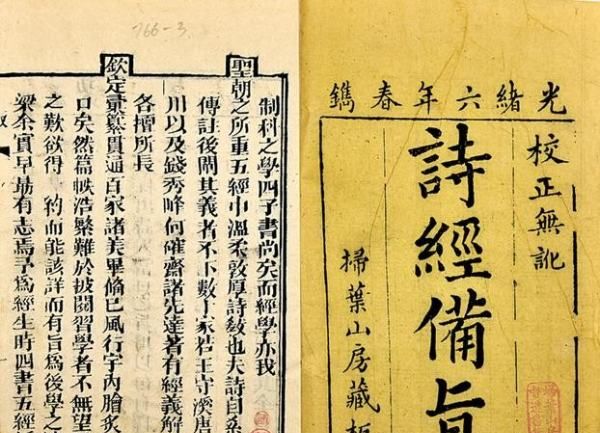 光緒六年春鐫
校正無訛
詩經備旨
掃葉山房藏板
766-3
制科之學四子書尚矣而經學亦我
聖朝之所重五經中溫柔敦厚詩教也夫詩自
傳註後闡其義者不下數十家若王守溪唐
川以及錢秀峰何確齋諸先達著有經義解
各擅所長
欽定彙纂貫通百家諸美畢備已風行宇內膾炙
口矣然篇帙浩繁難於披閱習學者不無望
之歎欲得約而能該詳而有旨爲後學之
梁余實早有志焉予爲經生時四書五經